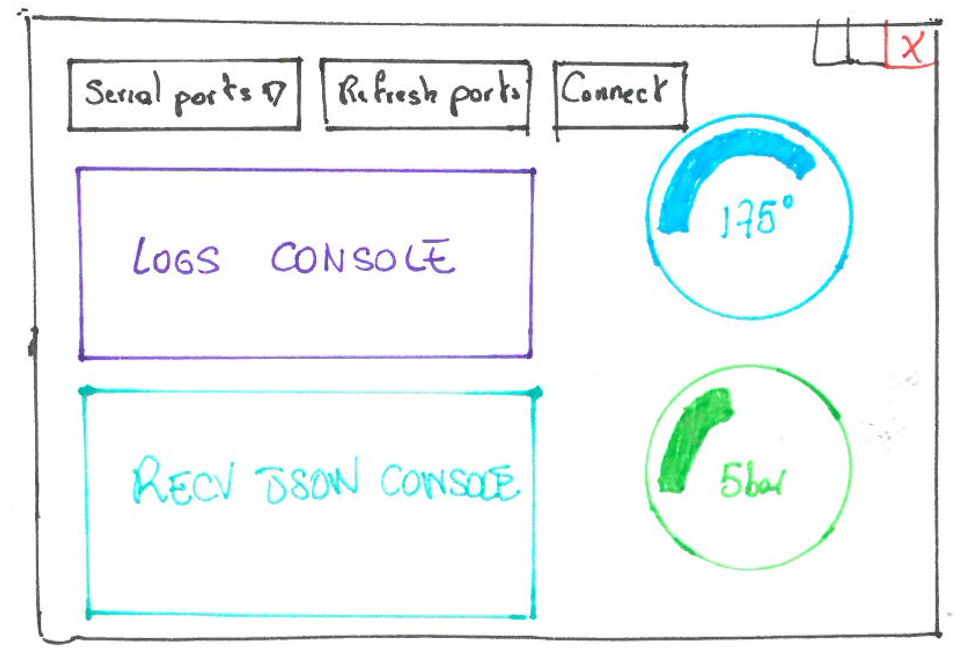 Serial ports ▽
Refresh ports
Connect
X
LOGS CONSOLE
175°
RECV JSON CONSOLE
5bar